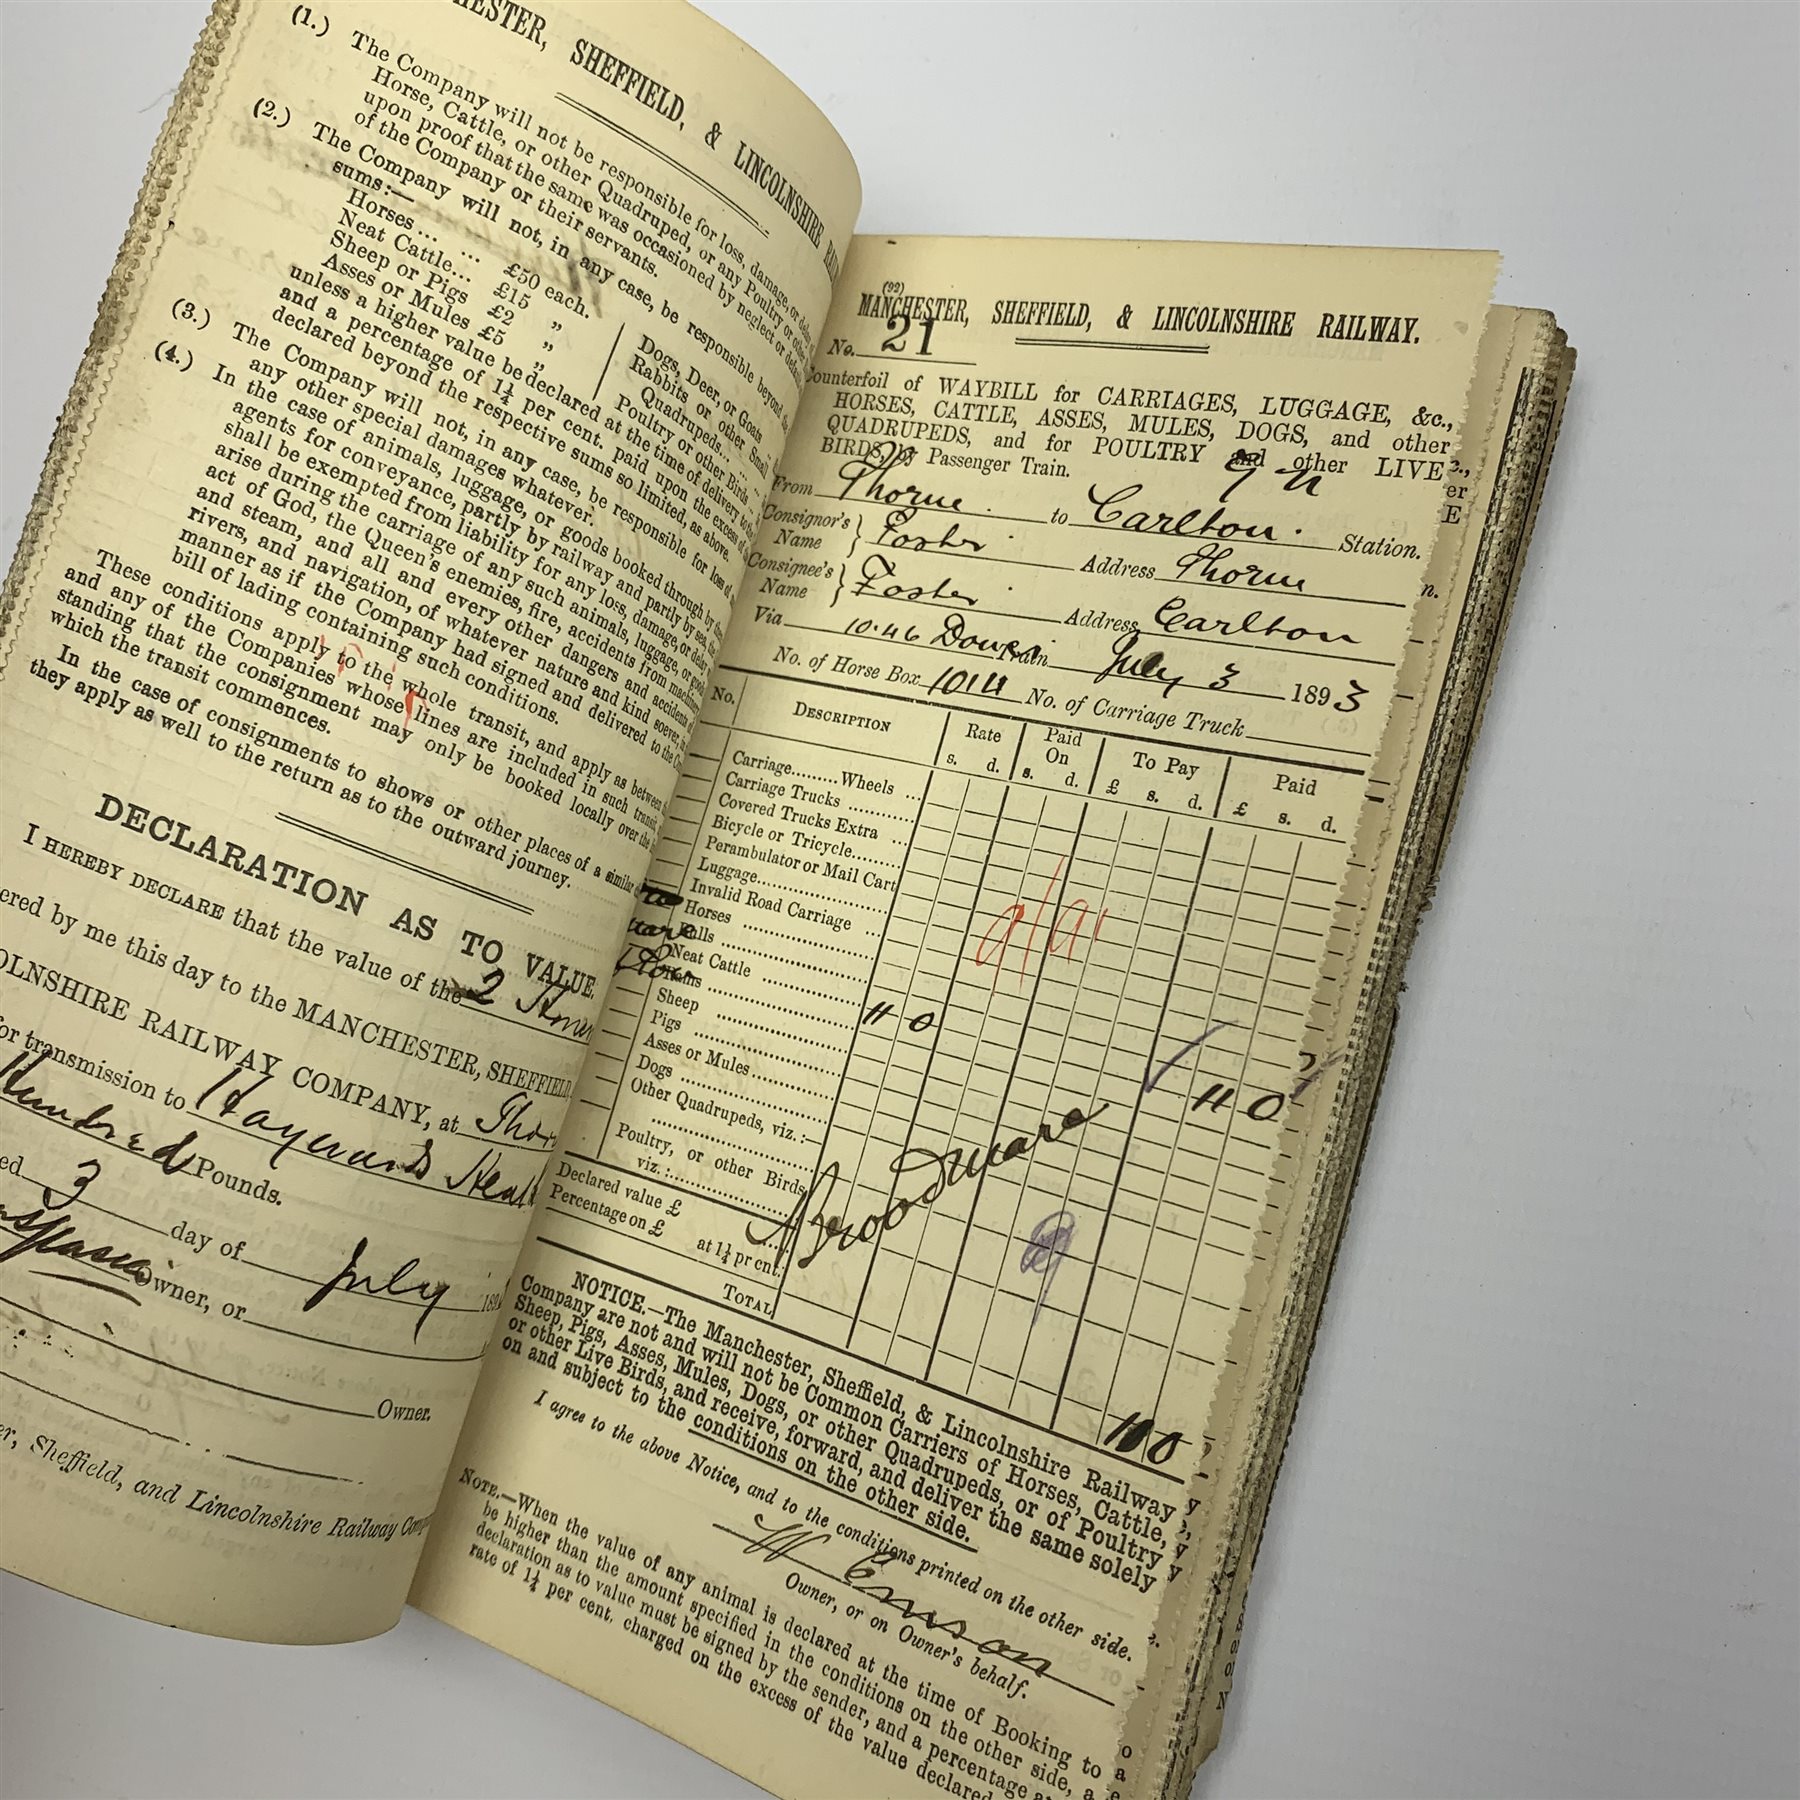 CHESTER, SHEFFIELD, & LINCOLNSHIRE RAIL
(1.) The Company will not be responsible for loss, damage, or delay
Horse, Cattle, or other Quadruped, or any Poultry or other
upon proof that the same was occasioned by neglect or default
of the Company or their servants.
(2.) The Company will not, in any case, be responsible beyond the
sums:—
Horses ... ... £50 each.
Neat Cattle... £15 „
Sheep or Pigs £2 „
Asses or Mules £5 „
Dogs, Deer, or Goats
Rabbits or other Small
Quadrupeds... ...
Poultry or other Birds ...
unless a higher value be declared at the time of delivery to the
and a percentage of 1¼ per cent. paid upon the excess of the
declared beyond the respective sums so limited, as above.
(3.) The Company will not, in any case, be responsible for loss of
any other special damages whatever.
(4.) In the case of animals, luggage, or goods booked through by the
agents for conveyance, partly by railway and partly by sea, the
shall be exempted from liability for any loss, damage, or delay
arise during the carriage of any such animals, luggage, or goods
act of God, the Queen's enemies, fire, accidents from machinery
and steam, and all and every other dangers and accidents of
rivers, and navigation, of whatever nature and kind soever, in
manner as if the Company had signed and delivered to the Co
bill of lading containing such conditions.
These conditions apply to the whole transit, and apply as between the
and any of the Companies whose lines are included in such transit,
standing that the consignment may only be booked locally over the
which the transit commences.
In the case of consignments to shows or other places of a similar
they apply as well to the return as to the outward journey.
DECLARATION AS TO VALUE.
I HEREBY DECLARE that the value of the 2
ered by me this day to the MANCHESTER, SHEFFIELD,
OLNSHIRE RAILWAY COMPANY, at Thor
for transmission to Haywards Heath
Hundred Pounds.
ed 3 day of July 189
Owner, or
Owner.
er, Sheffield, and Lincolnshire Railway Comp
(92)
MANCHESTER, SHEFFIELD, & LINCOLNSHIRE RAILWAY.
No. 21
Counterfoil of WAYBILL for CARRIAGES, LUGGAGE, &c.,
HORSES, CATTLE, ASSES, MULES, DOGS, and other
QUADRUPEDS, and for POULTRY and other LIVE
BIRDS, by Passenger Train.
From Thorne to Carlton Station.
Consignor's Name } Foster Address Thorne
Consignee's Name } Foster Address Carlton
Via 10.46 Donca Train July 3 1893
No. of Horse Box 1014 No. of Carriage Truck
No. DESCRIPTION Rate Paid On To Pay Paid
s. d. s. d. £ s. d. £ s. d.
Carriage......... Wheels ...
Carriage Trucks ............
Covered Trucks Extra ...
Bicycle or Tricycle.........
Perambulator or Mail Cart
Luggage........................
Invalid Road Carriage ...
Horses ........................
Calls ...........................
Neat Cattle ..................
Rams ........................... 11 0
Sheep ...........................
Pigs ..............................
Asses or Mules...............
Dogs .............................. 11 0
Other Quadrupeds, viz.:—
Poultry, or other Birds,
viz.:
Broodmare
Declared value £
Percentage on £ at 1¼ pr cnt.
TOTAL
NOTICE.—The Manchester, Sheffield, & Lincolnshire Railway
Company are not and will not be Common Carriers of Horses, Cattle,
Sheep, Pigs, Asses, Mules, Dogs, or other Quadrupeds, or of Poultry
or other Live Birds, and receive, forward, and deliver the same solely
on and subject to the conditions on the other side.
I agree to the above Notice, and to the conditions printed on the other side.
Owner, or on Owner's behalf.
NOTE.—When the value of any animal is declared at the time of Booking to
be higher than the amount specified in the conditions on the other side, a
declaration as to value must be signed by the sender, and a percentage at
rate of 1¼ per cent. charged on the excess of the value declared